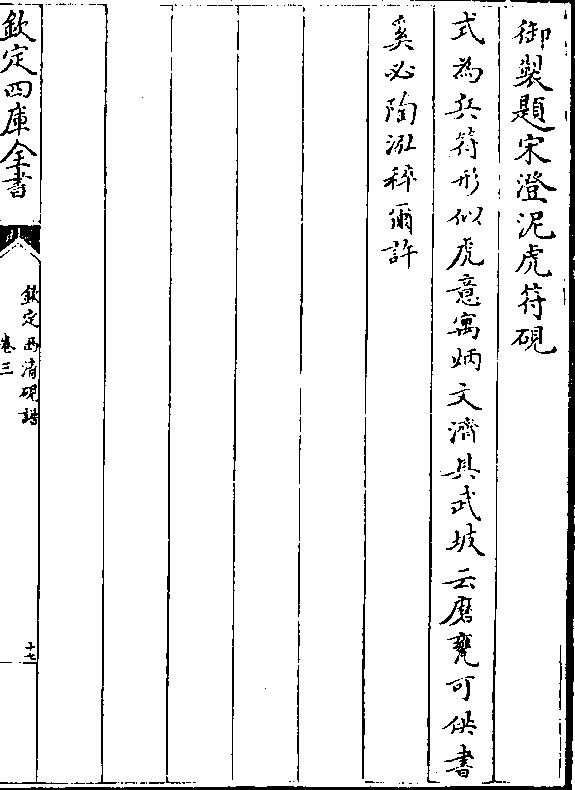 御製題宋澄泥虎符硯
式為兵符形似虎意寓炳文濟其武坡云磨甕可供書
奚必陶泓稡爾許
欽定四庫全書
欽定西清硯譜
卷三
十七